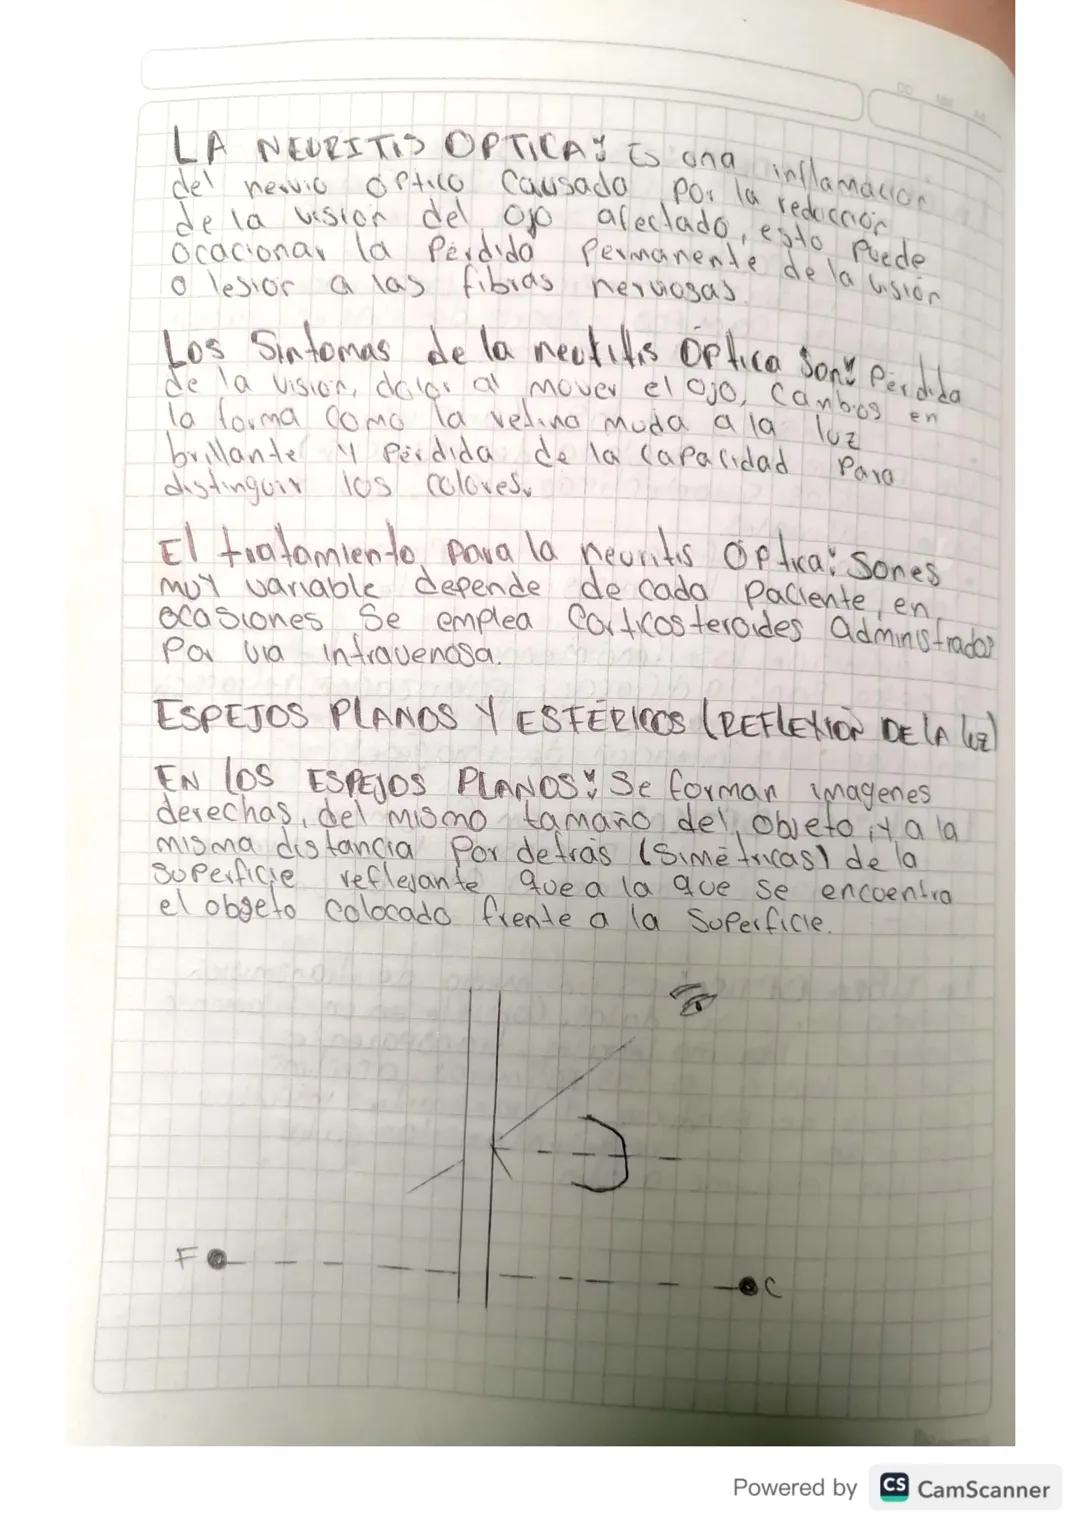 LA NEURITIS OPTICA: Es una inflamacion
del nervio óptico causada por la reducción
de la visión del ojo afectado, esto puede
ocacionar la Pérdida Permanente de la visión
o lesior a las fibras nerviosas.
Los Sintomas de la neutitis Óptica Son: Pérdida
de la visión, dolor al mover el ojo, canbios en
la forma como la retina muda a la luz
brillante y Pérdida de la capacidad Para
distinguir los colores.
El tratamiento para la neuritis óptica: Sones
muy variable depende de cada Paciente, en
ocasiones Se emplea Corticosteroides administrados
Por via intravenosa.
ESPEJOS PLANOS Y ESFÉRICOS (REFLEXIÓN DE LA LUZ)
EN LOS ESPEJOS PLANOS: Se forman imagenes
derechas, del mismo tamaño del objeto, y a la
misma distancia Por detrás (Simétricas) de la
Superficie reflejante que a la que se encuentra
el obgeto colocado frente a la Superficie.
F
C
Powered by CS CamScanner